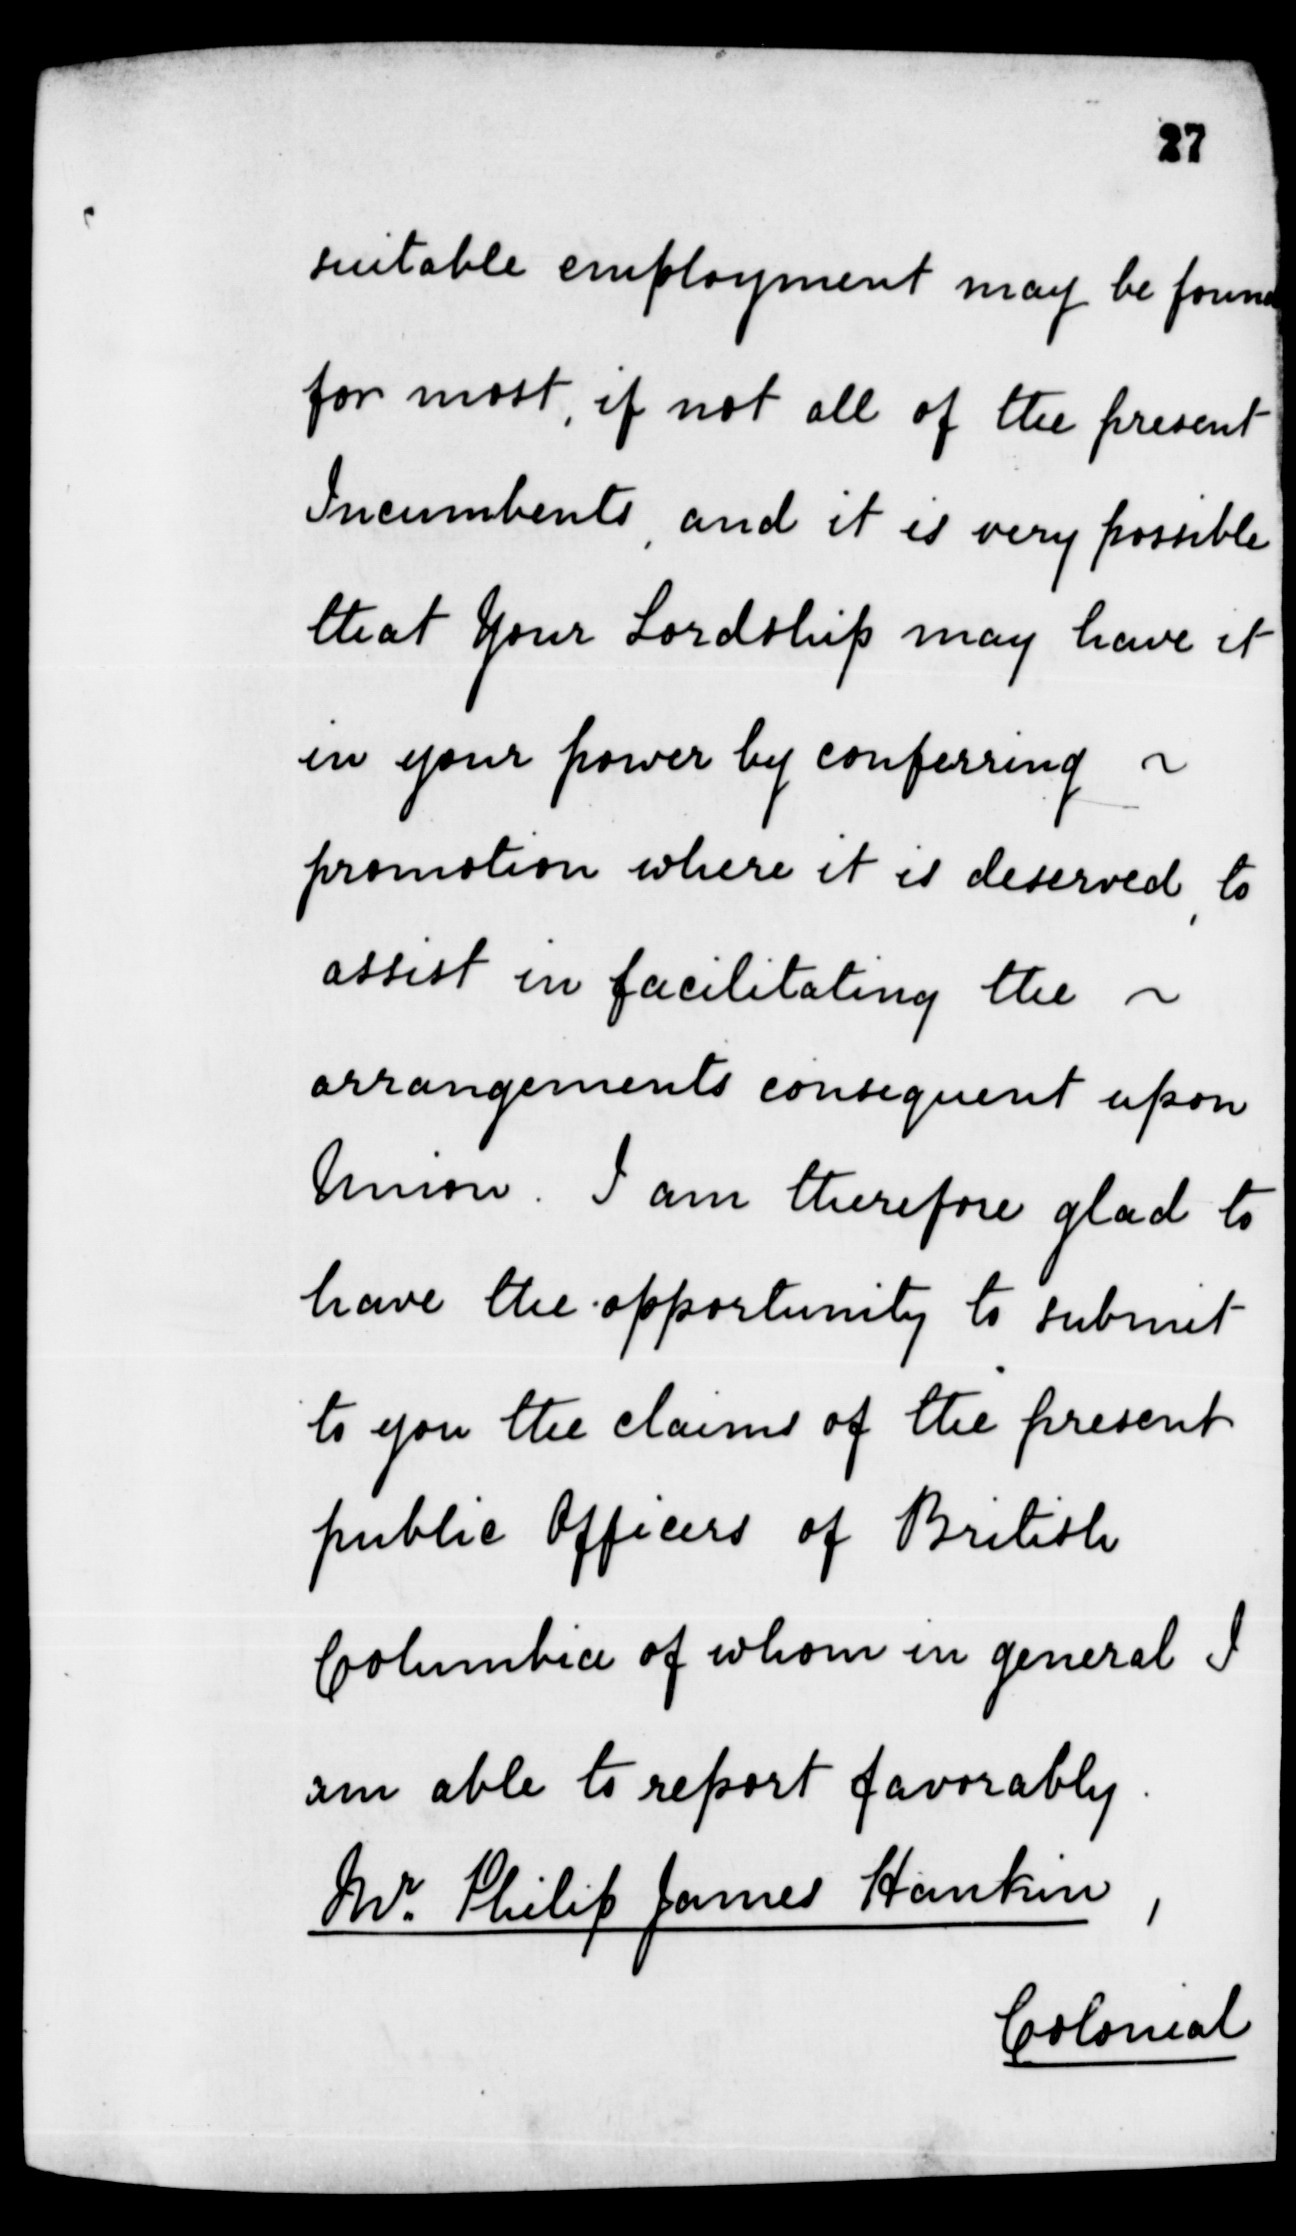 27
suitable employment may be found
for most, if not all of the present
Incumbents, and it is very possible
that Your Lordship may have it
in your power by conferring ~
promotion where it is deserved, to
assist in facilitating the ~
arrangements consequent upon
Union. I am therefore glad to
have the opportunity to submit
to you the claims of the present
public Officers of British
Columbia of whom in general I
am able to report favorably.
Mr. Philip James Hankin,
Colonial